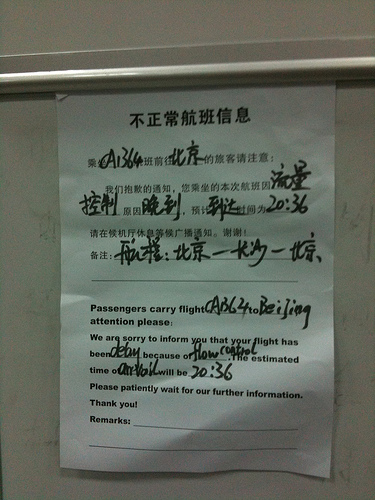 不正常航班信息
乘坐CA1364航班前往北京的旅客请注意：
我们抱歉的通知，您乘坐的本次航班因流量
控制原因晚到，预计到达时间为20:36
请在候机厅休息等候广播通知。谢谢！
备注：航程：北京—KHN—北京、
Passengers carry flight CA1364 to Beijing
attention please:
We are sorry to inform you that your flight has
been delay because of flow control. The estimated
time of arrvail will be 20:36
Please patiently wait for our further information.
Thank you!
Remarks: